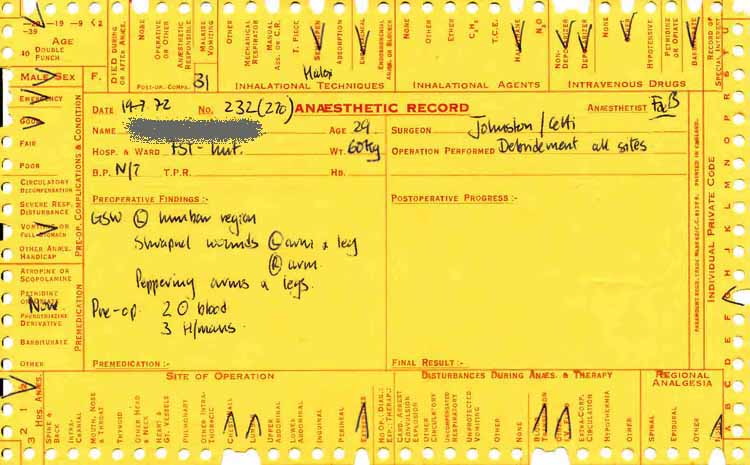 -29 -19 -9 <2
-39
40
AGE
DOUBLE PUNCH
DIED DURING OR AFTER ANÆS.
NONE
OPERATIVE OR OTHER
ANÆSTHETIC RESPONSIBLE
MALAISE VOMITING
OTHER
MECHANICAL RESPIRATOR
MANUAL ASS. OR C.R.
T. PIECE
ABSORPTION
ENDOBRONCHIAL
NONE
OTHER
ETHER
C₃H₆
T.C.E.
HALOTHANE
N₂O
NON-DEPOLARIZER
DEPOLARIZER
NONE
OTHER
HYPOTENSIVE
PETHIDINE OR OPIATE
BARBITURATE
RECORD OF SPECIAL INTEREST
MALE SEX F.
POST-OP. COMPS. 31
Halox
INHALATIONAL TECHNIQUES
INHALATIONAL AGENTS
INTRAVENOUS DRUGS
EMERGENCY
GOOD
FAIR
POOR
CIRCULATORY DECOMPENSATION
SEVERE RESP. DISTURBANCE
VOMITING OR FULL STOMACH
OTHER ANÆS. HANDICAP
PRE-OP. COMPLICATIONS & CONDITION
ATROPINE OR SCOPOLAMINE
PETHIDINE OR OPIATE
None
PHENOTHIAZINE DERIVATIVE
BARBITURATE
OTHER
PREMEDICATION
DATE 19-7 72 No. 232(270) ANÆSTHETIC RECORD ANÆSTHETIST
NAME AGE 29 SURGEON Johnston/
HOSP. & WARD WT. 60Kg OPERATION PERFORMED Debridement all sites
B.P. N/T T.P.R. HB.
PREOPERATIVE FINDINGS :- POSTOPERATIVE PROGRESS :-
GSW Ⓛ lumbar region
Shrapnel wounds Ⓛ arm & leg
Ⓡ arm
Peppering arms & legs.
Pre-op 2 O blood
3 H/mans
PREMEDICATION :- FINAL RESULT :-
INDIVIDUAL PRIVATE CODE
SITE OF OPERATION
DISTURBANCES DURING ANÆS. & THERAPY
REGIONAL ANALGESIA
3 2 1
HRS. ANÆS.
SPINE & BACK
INTRA-CRANIAL
MOUTH, NOSE & THROAT
THYROID
OTHER HEAD & NECK
HEART & GT. VESSELS
PULMONARY
OTHER INTRA-THORACIC
CHEST WALL
UPPER ABDOMINAL
LOWER ABDOMINAL
INGUINAL
PERINEAL
EXTREMITIES
CARD. ARREST CONVULSION EXPLOSION
OTHER CIRCULATORY
UNCOMPENSATED RESPIRATORY
UNPROTECTED VOMITING
OTHER
NONE
EXTRA-CORP. CIRCULATION
HYPOTHERMIA
OTHER
SPINAL
EPIDURAL
OTHER